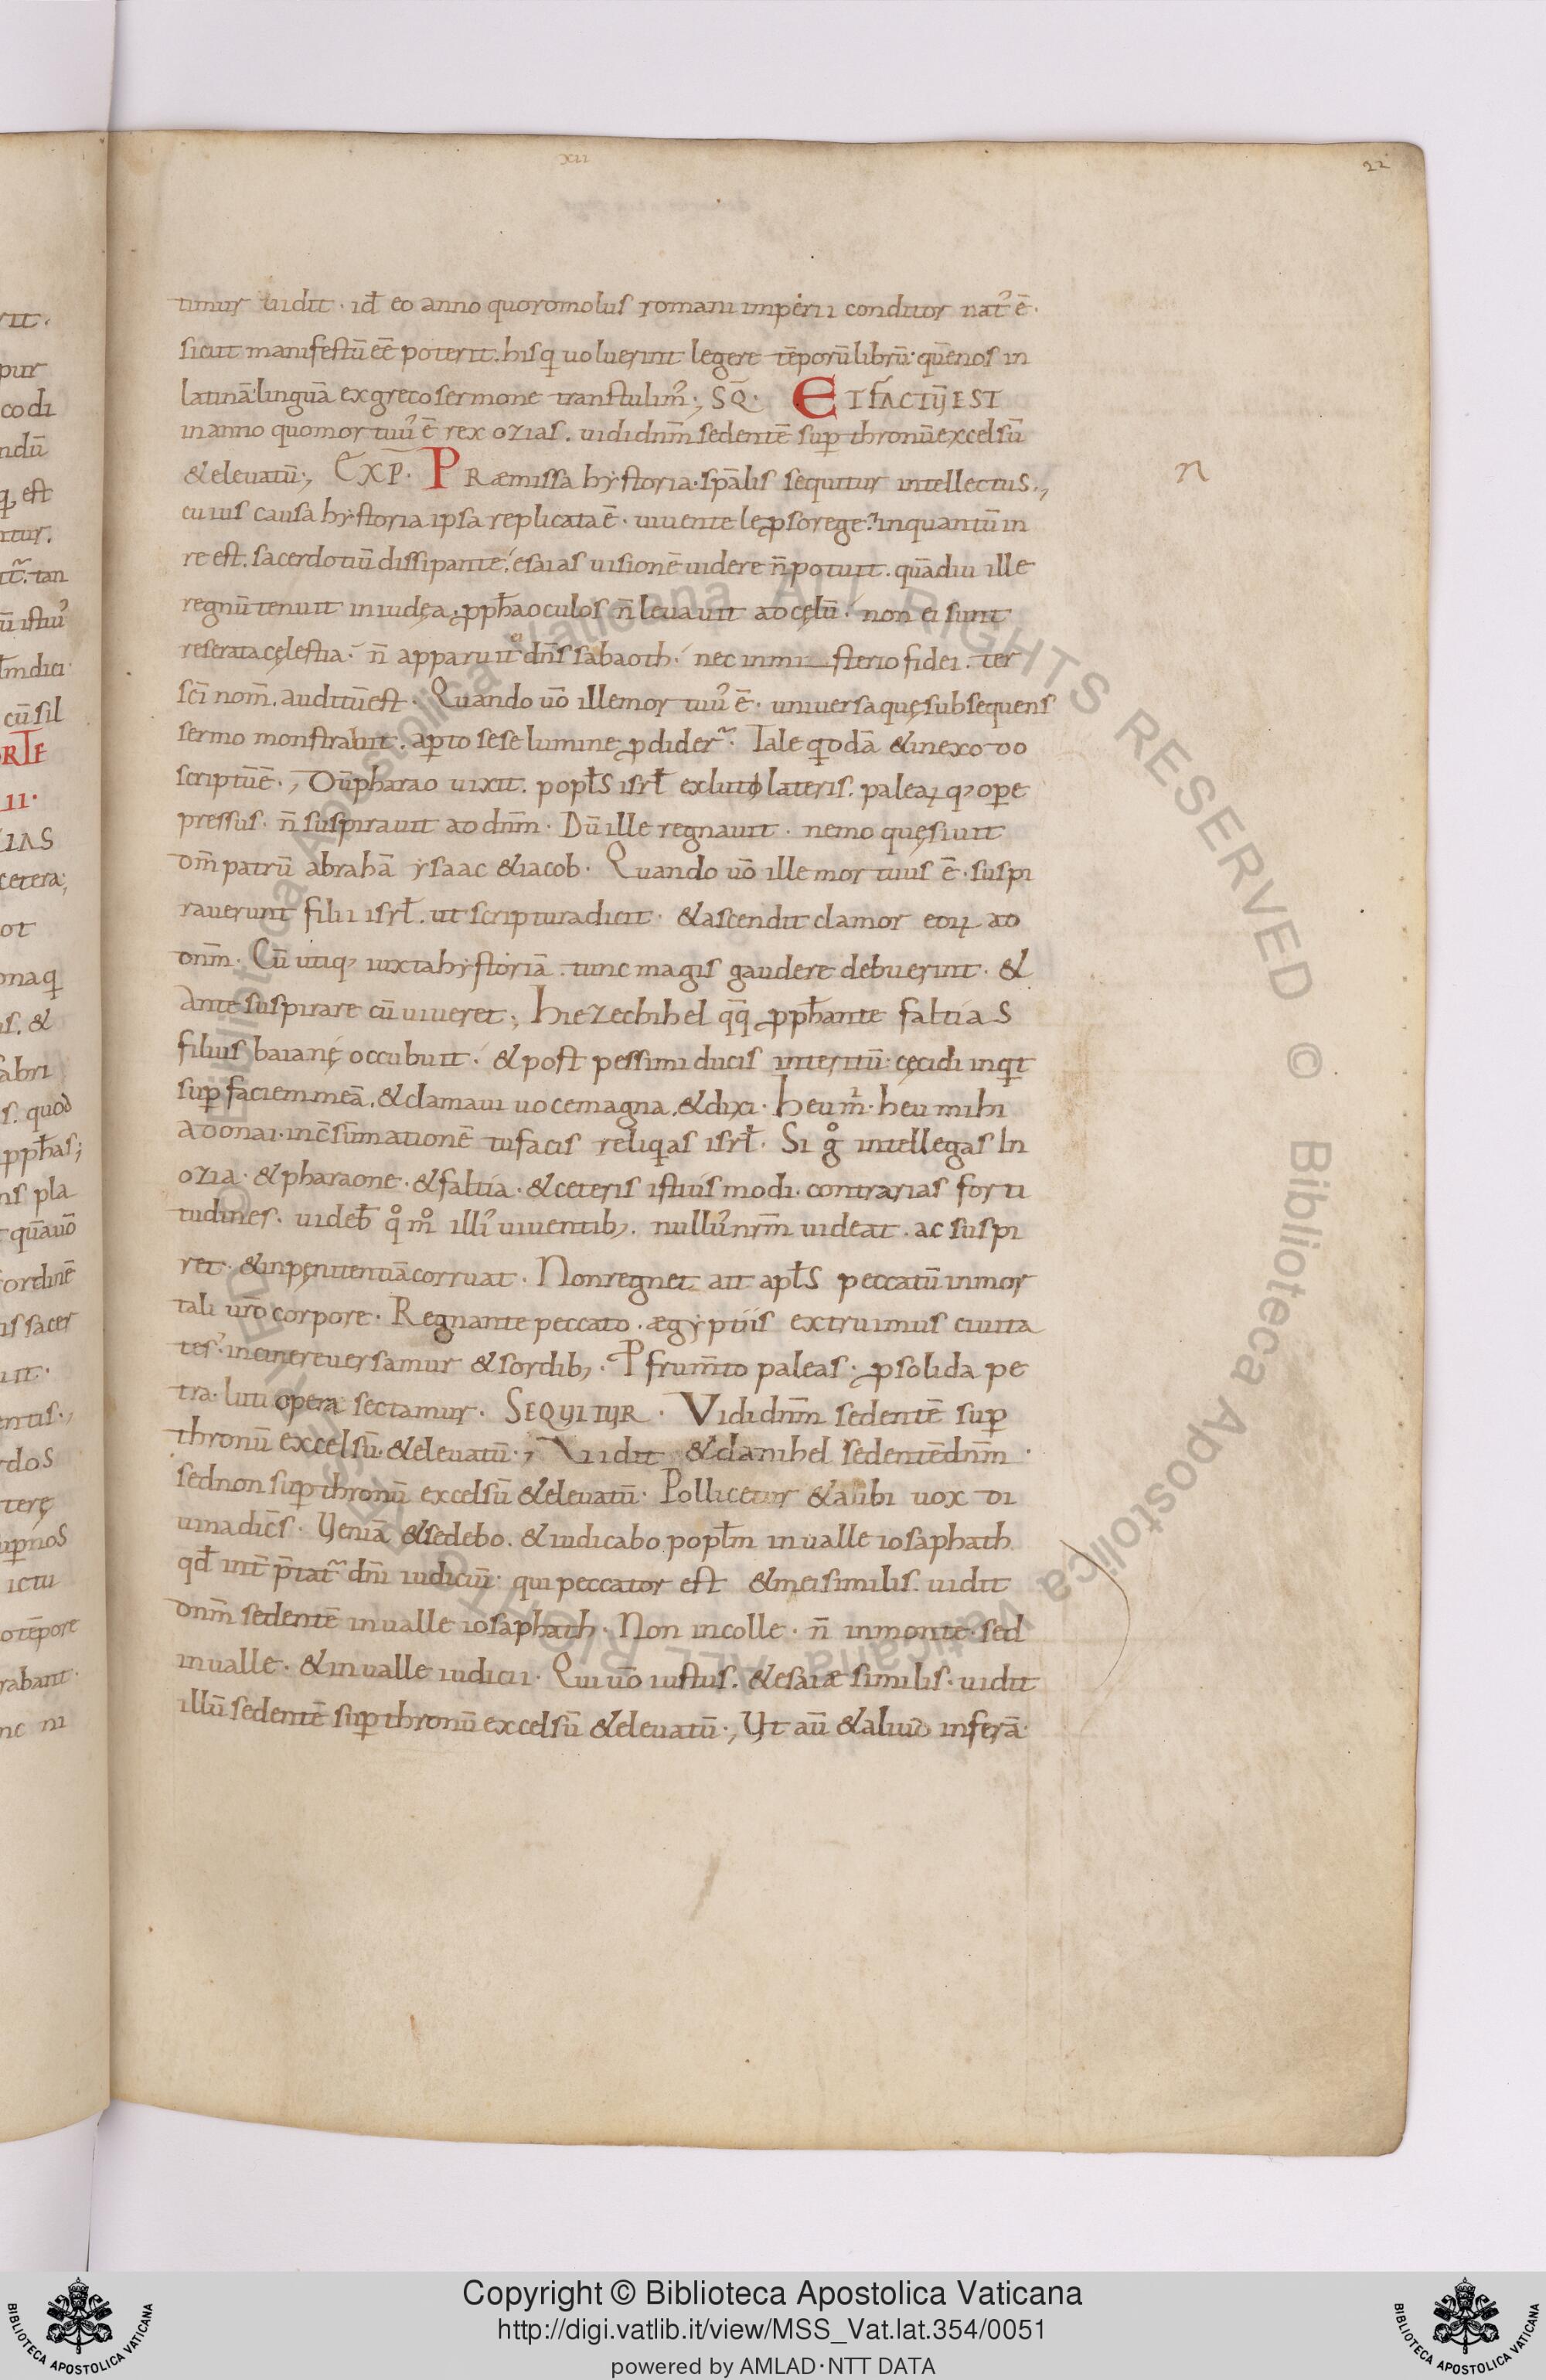 xii
22
timur uidit · id̄ eo anno quoromolus romani imperii conditor natꝰ ē ·
sicut manifestū eē poterit . hisq̄ uoluerint legere tēporū librū · quē nos in
latinā linguā ex greco sermone transtulimꝰ ; SQ̄ · ET FACTŪ EST
in anno quo mortuuꝰ ē rex ozias . uidi dn̄m sedentē suꝑ thronū excelsū
& eleuatū ; EXP̄ · PRæmissa hẏstoria · sp̄alis sequitur intellectus ;
cuius causa hẏstoria ipsa replicata ē · uiuente leꝓso rege · inquantū in
re est . sacerdotiū dissipante · esaias uisionē uidere n̄ potuit . quādiu ille
regnū tenuit in iudęa · ꝓpħa oculos n̄ leuauit ad cęlū · non ei sunt
reserata cęlestia · n̄ apparuit ei dn̄s sabaoth · nec in ministerio fidei · ter
sc̄i nom̄ . auditū est · Quando uō ille mortuuꝰ ē · uniuersa quę subsequens
sermo monstrabit . aꝑto sese lumine ꝓdider̄ · Tale qꝺdā & in exodo
scriptū ē · ; Dū pharao uixit . popłs isrł ex luto lateris . paleaꝝ qꝫ oꝑe
pressus · n̄ suspirauit ad dn̄m · Dū ille regnauit · nemo quęsiuit
dm̄ patrū abrahā ẏsaac & iacob · Quando uō ille mortuus ē · suspi
rauerunt filii isrł . ut scriptura dicit · & ascendit clamor eoꝝ ad
dn̄m · Cū utiqꝫ iuxta hẏstoriā . tunc magis gaudere debuerint · &
ante suspirare cū uiueret ; hiezechihel qq̄ ꝓpħante faltias
filius baianę occubuit · & post pessimi ducis interitū · cęcidi inqͥt
suꝑ faciem meā . & clamaui uoce magna . & dixi · heu mͥ · heu mihi
adonai · in c̄sūmationē tu facis reliqͥas isrł · Si gͦ intellegas in
ozia · & pharaone · & faltia · & ceteris istiusmodi · contrarias forti
tudines · uideb̄ qͦmͦ illiꝰ uiuentibꝫ . nulluꝰ nr̄m uideat · ac suspi
ret · & in pęnitentiā corruat · Non regnet ait apłs peccatū in mor
tali uro corpore · Regnante peccato · ægẏptiis extruimus ciuita
tes · in cinere uersamur & sordibꝫ · P frum̄to paleas · ꝓ solida pe
tra · luti opera sectamur · SEQUITUR · Vidi dn̄m sedentē suꝑ
thronū excelsū · & eleuatū · ; Uidit & danihel sedentē dn̄m ·
sed non suꝑ thronū excelsū & eleuatū · Pollicetur & alibi uox di
uina dic̄s · Ueniā & sedebo . & iudicabo popłm in ualle iosaphath
qđ int̄p̄tat̄ dn̄i iudiciū · qui peccator est & mei similis . uidit
dn̄m sedentē in ualle iosaphath · Non in colle · n̄ in monte · sed
in ualle · & in ualle iudicii · Qui uō iustus . & esaiæ similis · uidit
illū sedentē suꝑ thronū excelsū & eleuatū · ; Ut aū & aliud inferā ·
n
Copyright © Biblioteca Apostolica Vaticana
http://digi.vatlib.it/view/MSS_Vat.lat.354/0051
powered by AMLAD·NTT DATA